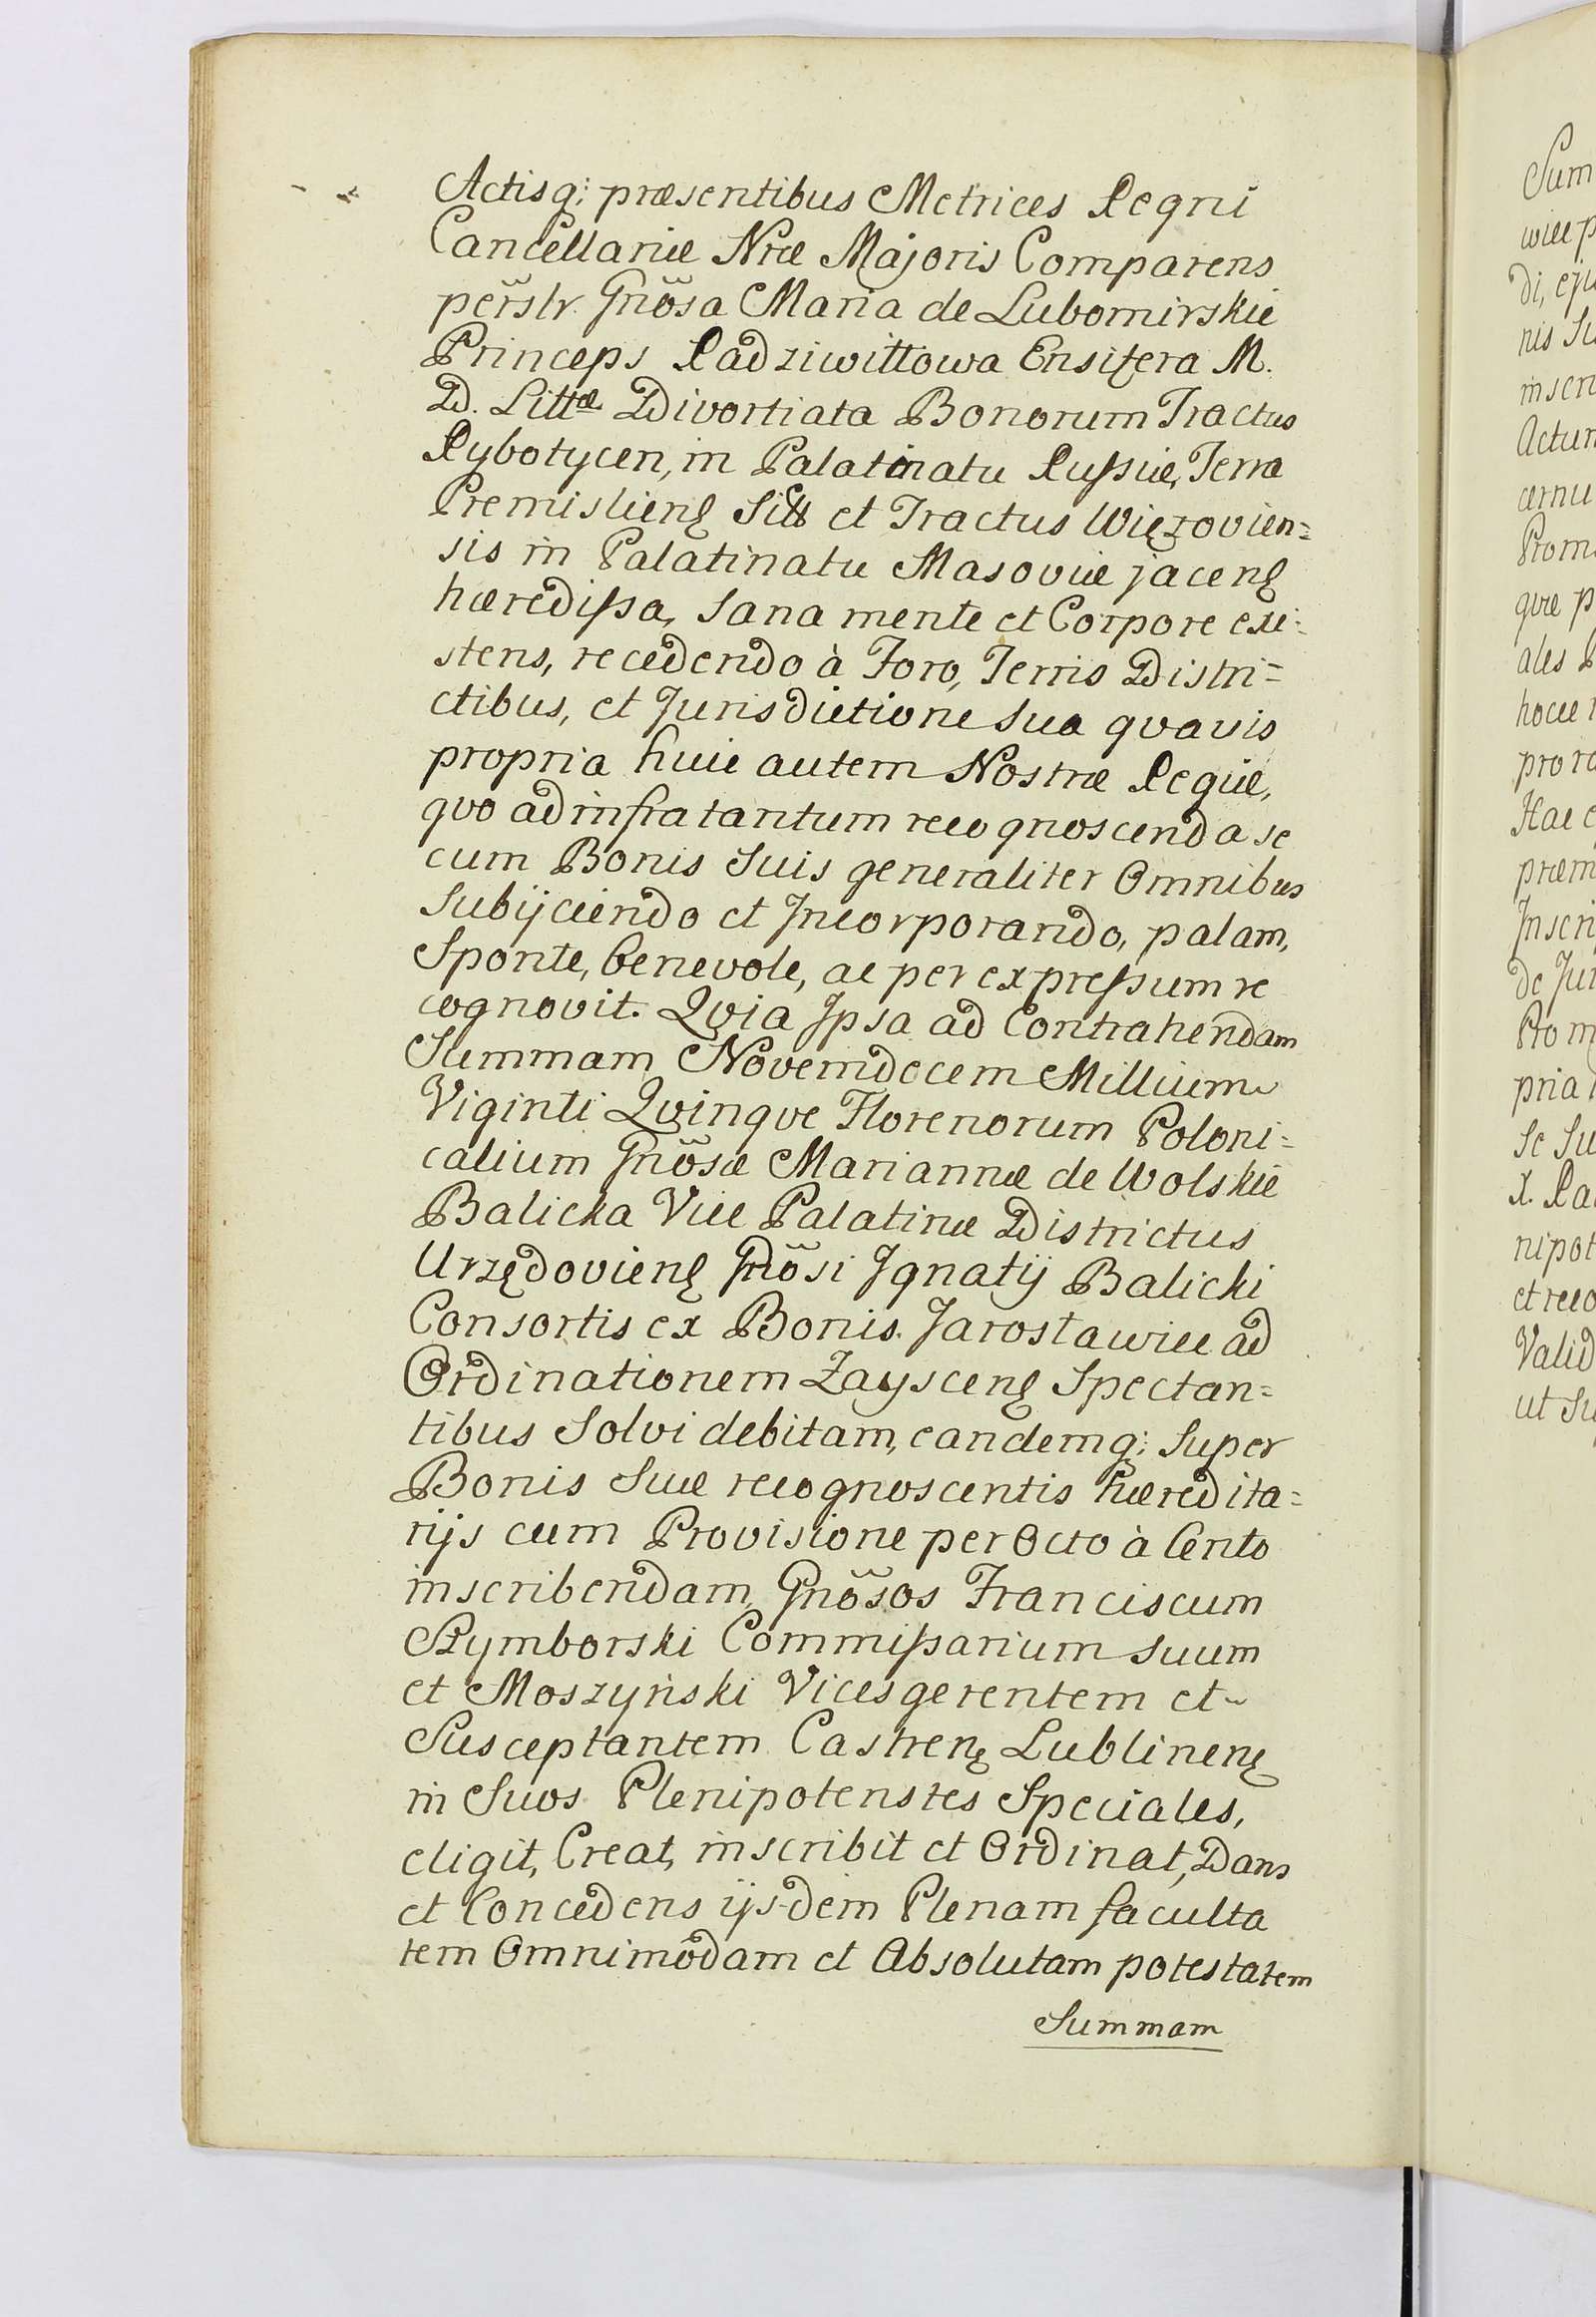 Actisq; præsentibus Metrices Regni
Cancellariæ Nræ Majoris Comparens
perslr. Gnosa Maria de Lubomirskie
Princeps Radziwiłłowa Ensifera M.
D. Littæ Divortiata Bonorum Tractus
Rybotycen, in Palatinatu Russiæ, Terra
Premislien͜s Sitt et Tractus Więzovien=
sis in Palatinatu Masoviæ jacen͜s
hæredissa, Sana mente et Corpore exi=
stens, recedendo à Foro, Terris Distri=
ctibus, et Jurisdictione Sua qvavis
propria huic autem Nostræ Regiæ,
qvo ad infra tantum recognoscenda se
cum Bonis Suis generaliter Omnibus
Subijciendo et Incorporando, palam,
Sponte, benevole, ac per expressum re
cognovit. Qvia Ipsa ad Contrahendam
Summam Novemdecem Millium
Viginti Qvinqve Florenorum Poloni=
calium Gnosæ Mariannæ de Wolskie
Balicka Vice Palatinæ Districtus
Urzędovien͜s Gnosi Ignatij Balicki
Consortis ex Bonis Jarosławice ad
Ordinationem Zayscen͜s Spectan=
tibus Solvi debitam, eandemq; Super
Bonis Suæ recognoscentis hæredita=
rijs cum Provisione per Octo à Cento
inscribendam, Gnosos Franciscum
Rymborski Commissarium suum
et Moszyński Vicesgerentem et
Susceptantem Castren͜s Lublinen͜s
in Suos Plenipotenstes Speciales,
eligit, Creat, inscribit et Ordinat, Dans
et Concedens ijsdem Plenam faculta
tem Omnimodam et Absolutam potestatem
Summam
Sum
wice p
di, eju
nis Su
inscri
Actum
cernu
Prom
qvæ p
ales
hocce
pro re
Hac
præm
Inscri
de Jur
Prom
pria
se Su
x. Ra
nipot
et reco
Valid
ut Su